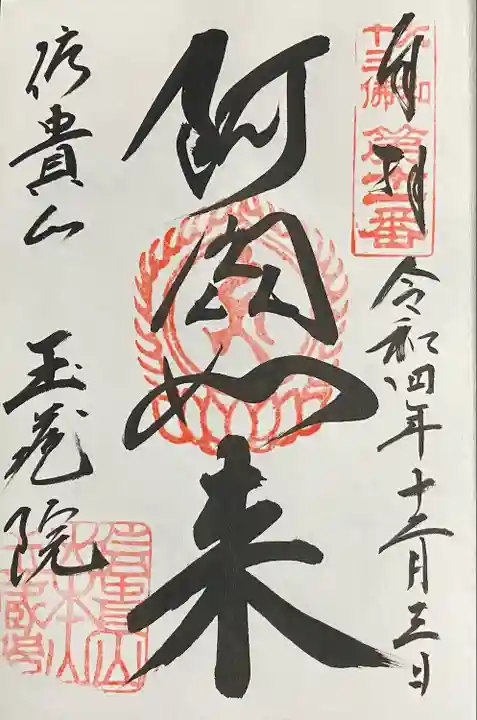 奉拝
大和
十三佛
第十一番
令和四年十二月三日
阿閦如来
信貴山 玉蔵院
信貴山